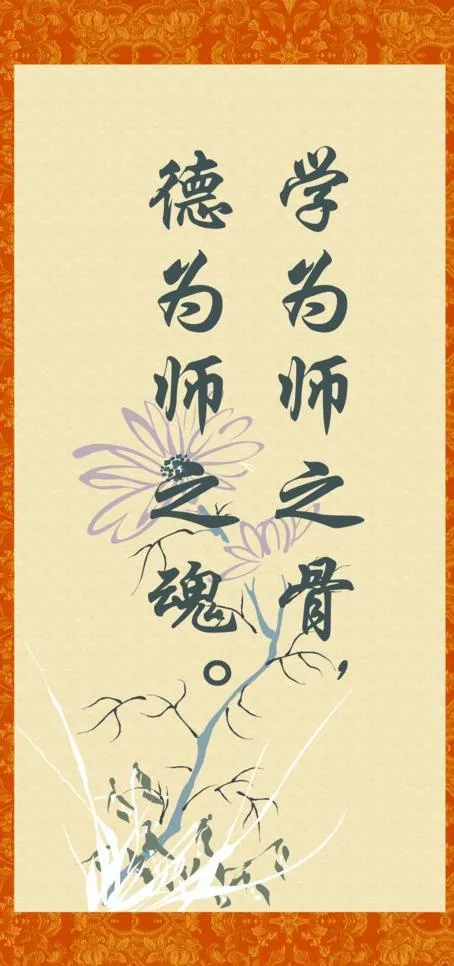 学为师之骨，
德为师之魂。